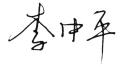 李中平